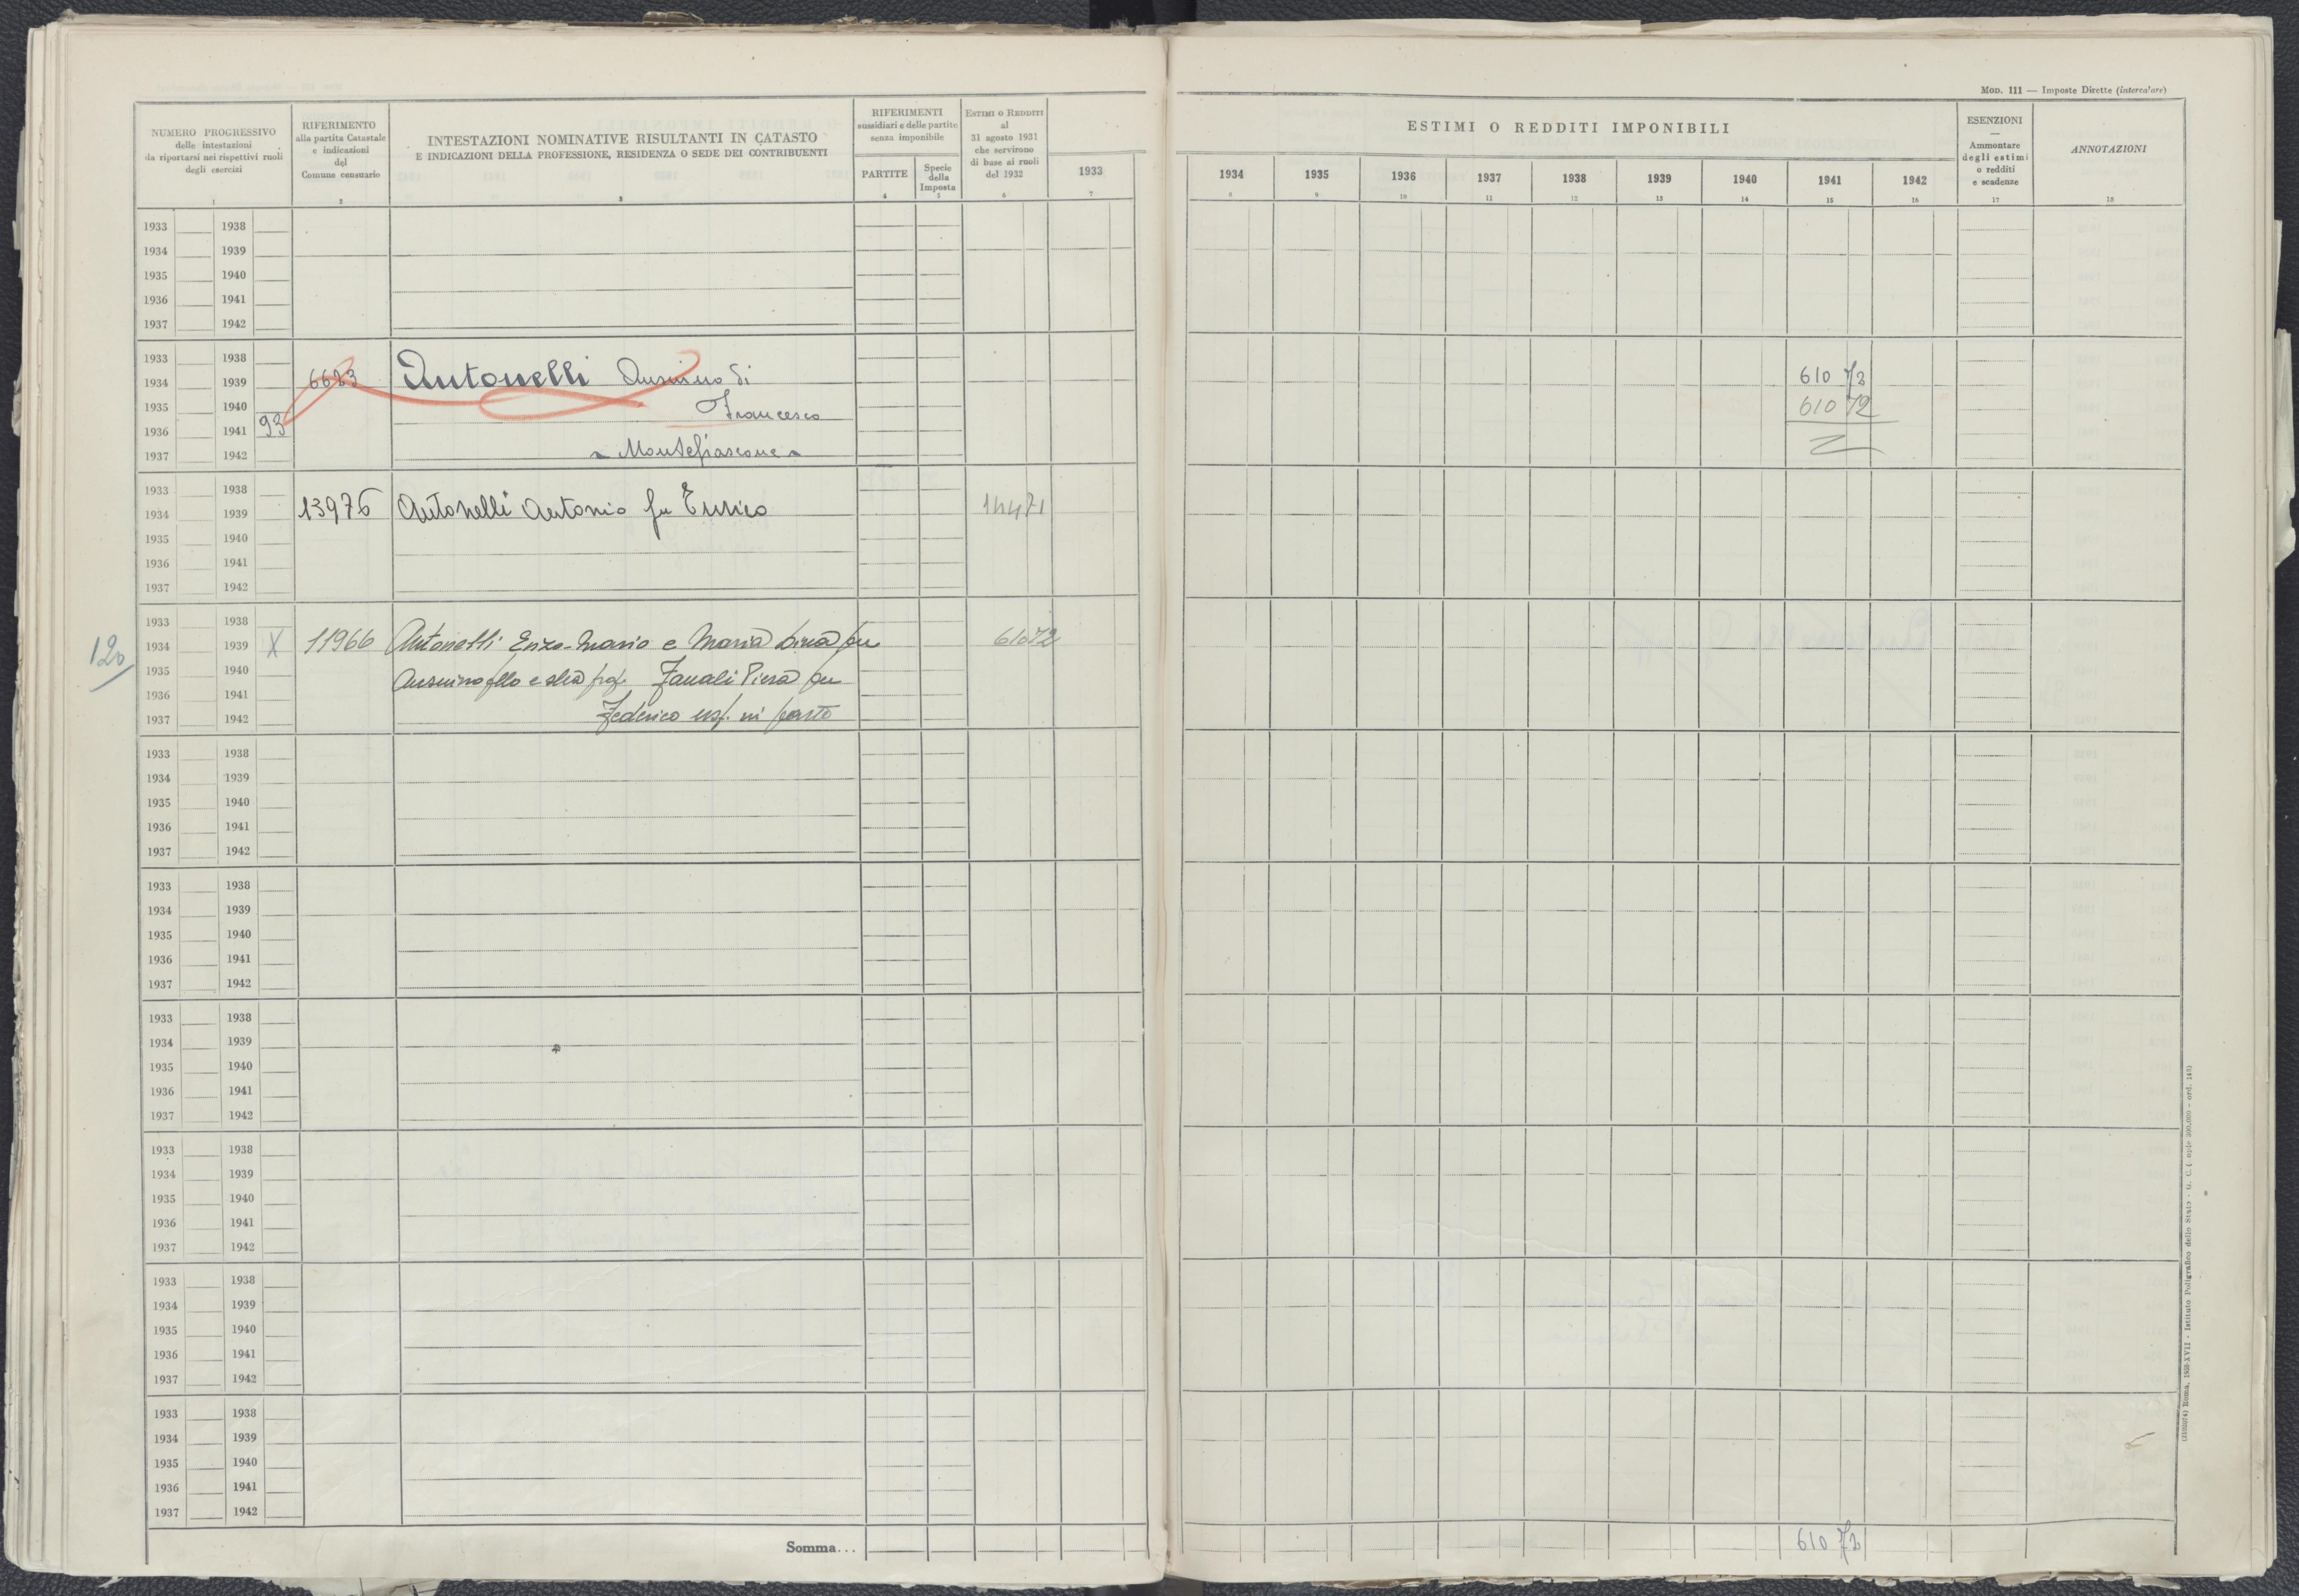 MOD. 111 — Imposte Dirette (intercalare)
NUMERO PROGRESSIVO
delle intestazioni
da riportarsi nei rispettivi ruoli
degli esercizi
1
RIFERIMENTO
alla partita Catastale
e indicazioni
del
Comune censuario
2
INTESTAZIONI NOMINATIVE RISULTANTI IN CATASTO
E INDICAZIONI DELLA PROFESSIONE, RESIDENZA O SEDE DEI CONTRIBUENTI
3
RIFERIMENTI
sussidiari e delle partite
senza imponibile
PARTITE
4
Specie
della
Imposta
5
ESTIMI O REDDITI
al
31 agosto 1931
che servirono
di base ai ruoli
del 1932
6
1933
7
ESTIMI O REDDITI IMPONIBILI
1934 1935 1936 1937 1938 1939 1940 1941 1942
8 9 10 11 12 13 14 15 16
ESENZIONI
—
Ammontare
degli estimi
o redditi
e scadenze
17
ANNOTAZIONI
18
1933 1938
1934 1939
1935 1940
1936 1941
1937 1942
1933 1938
1934 1939 6623 Antonelli Ansuino di 610 72
1935 1940 Francesco 610 72
1936 1941 93
1937 1942 Montefiascone
1933 1938
1934 1939 13976 Antonelli Antonio fu Enrico 144 71
1935 1940
1936 1941
1937 1942
1933 1938
120 1934 1939 X 11966 Antonelli Enzo-Mario e Maria fu 610 72
1935 1940 Ansuino fllo e slla Zanali Piera fu
1936 1941
1937 1942 Federico usf. in parte
1933 1938
1934 1939
1935 1940
1936 1941
1937 1942
1933 1938
1934 1939
1935 1940
1936 1941
1937 1942
1933 1938
1934 1939
1935 1940
1936 1941
1937 1942
1933 1938
1934 1939
1935 1940
1936 1941
1937 1942
1933 1938
1934 1939
1935 1940
1936 1941
1937 1942
1933 1938
1934 1939
1935 1940
1936 1941
1937 1942
Somma... 610 72
Roma, 1938-XVII - Istituto Poligrafico dello Stato - G. C.